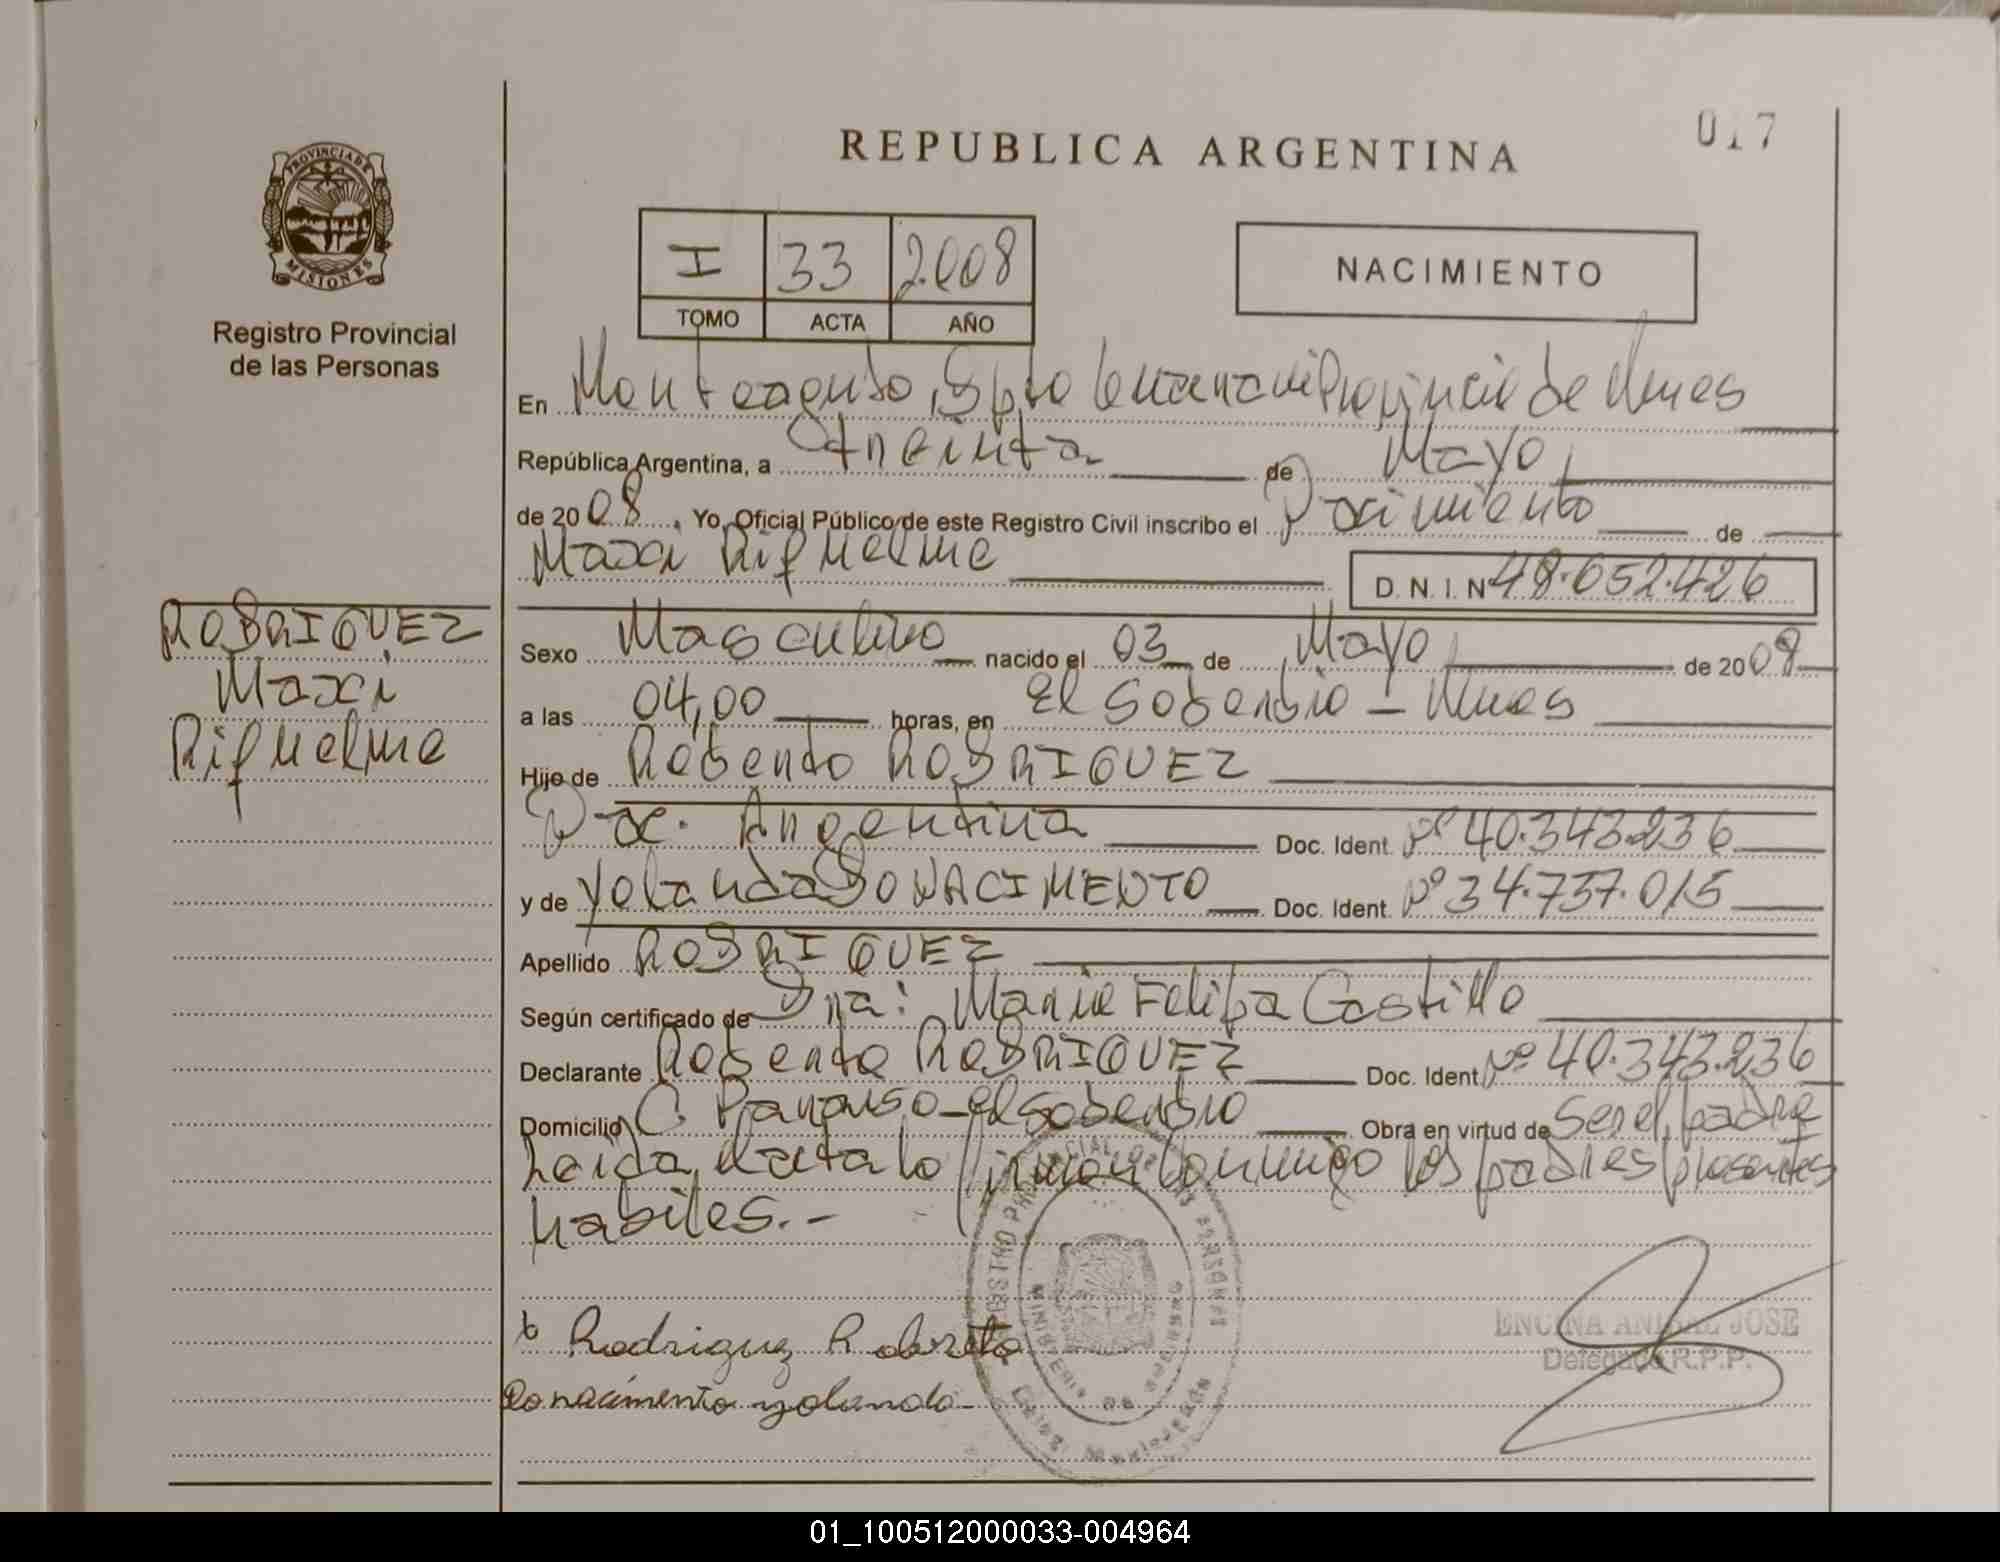 017
REPUBLICA ARGENTINA
PROVINCIA DE
MISIONES
Registro Provincial
de las Personas
I 33 2.008
TOMO ACTA AÑO
NACIMIENTO
En Monteagudo, Dpto Provincia de Mnes
República Argentina, a treinta de Mayo
de 2008, Yo, Oficial Público de este Registro Civil inscribo el Nacimiento de
Maxi Riquelme D. N. I. Nº 48.652.426
RODRIGUEZ
Maxi
Riquelme
Sexo Masculino nacido el 03 de Mayo de 2008
a las 04,00 horas, en El Soberbio - Mnes
Hijo de Roberto RODRIGUEZ
Nac. Argentina Doc. Ident. Nº 40.343.236
y de Yolanda DO NACIMENTO Doc. Ident. Nº 34.737.015
Apellido RODRIGUEZ
Según certificado de Dra: Maria Felipa Castillo
Declarante Roberto RODRIGUEZ Doc. Ident. Nº 40.343.236
Domicilio C. Paraiso - El Soberbio Obra en virtud de Ser el padre
Leida el acta lo firman conmigo los padres presentes
habiles.-
Rodriguz Robreto
Do nacimento yolanda
ENCINA ANIBAL JOSE
Delegado R.P.P.
01_100512000033-004964